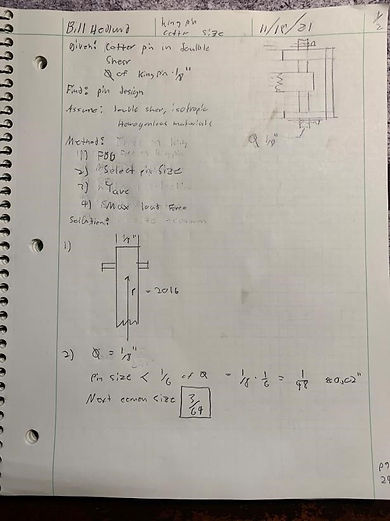 Bill Hedlund
king pin
cotter size
11/18/21
given: Cotter pin in double
shear
Q of king pin 1/8"
Find: pin design
Assume: double shear, isotropic
Homogenious materials
Method:
1) FBD
2) Select pin size
3) τave
4) Max load force
Solution:
Q 1/8"
1)
1/8"
P = 20lb
2) Q = 1/8"
Pin size < 1/6 of Q = 1/8 · 1/6 = 1/48 ≈ 0.02"
Next common size 3/64